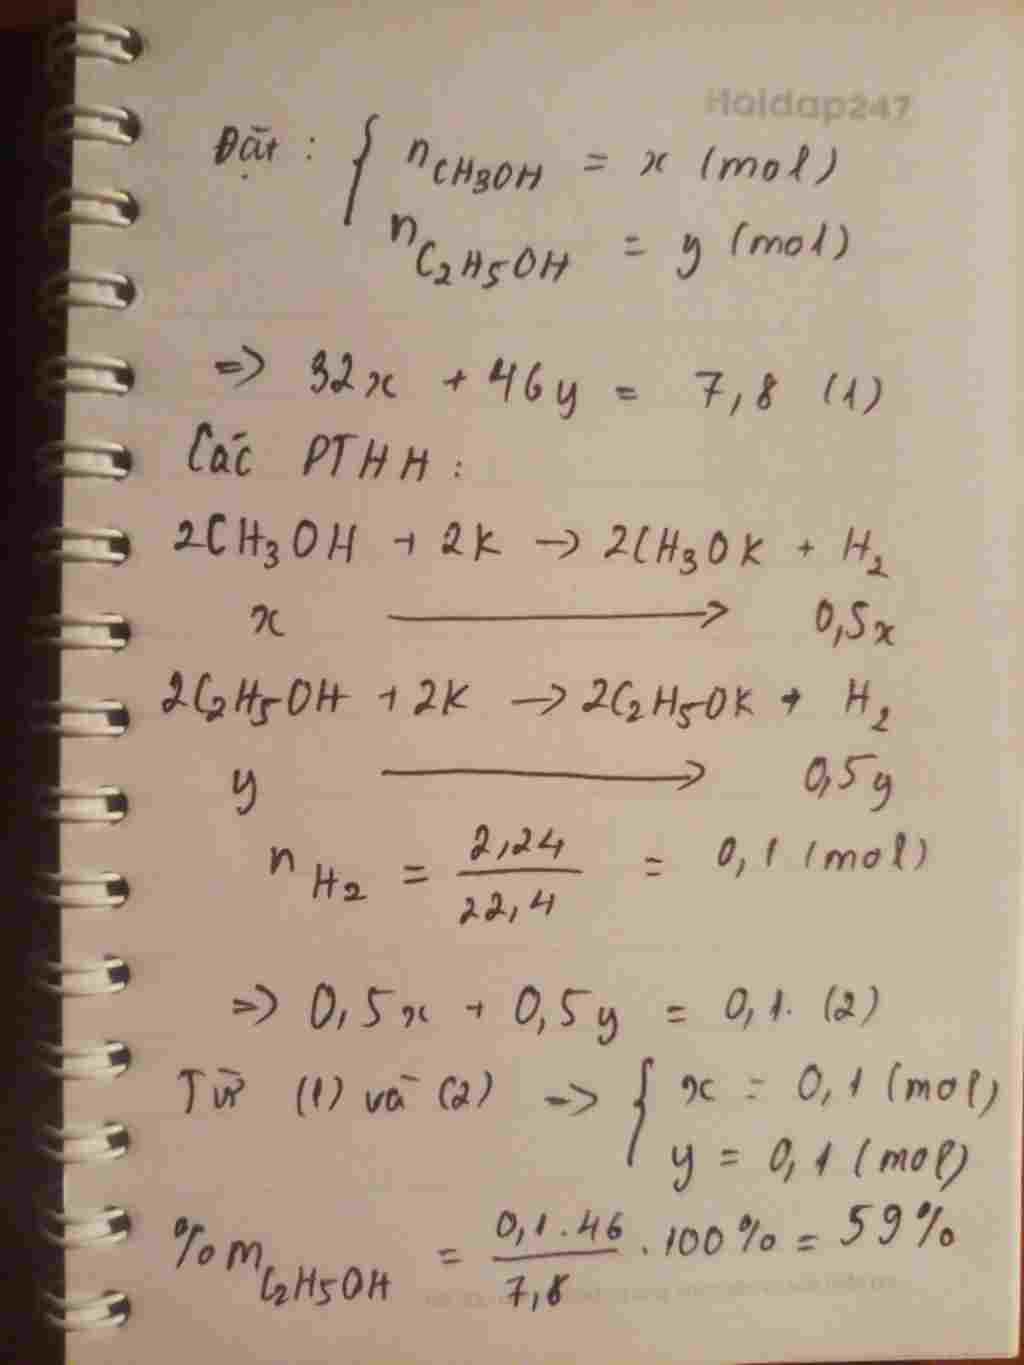 Hoidap247
Đặt : { n CH3OH = x (mol)
n C2H5OH = y (mol)
=> 32x + 46y = 7,8 (1)
Các PTHH :
2CH3OH + 2K → 2CH3OK + H2
x → 0,5x
2C2H5OH + 2K → 2C2H5OK + H2
y → 0,5y
n H2 = 2,24 / 22,4 = 0,1 (mol)
=> 0,5x + 0,5y = 0,1. (2)
Từ (1) và (2) => { x = 0,1 (mol)
y = 0,1 (mol)
%m C2H5OH = 0,1.46 / 7,8 . 100% = 59%